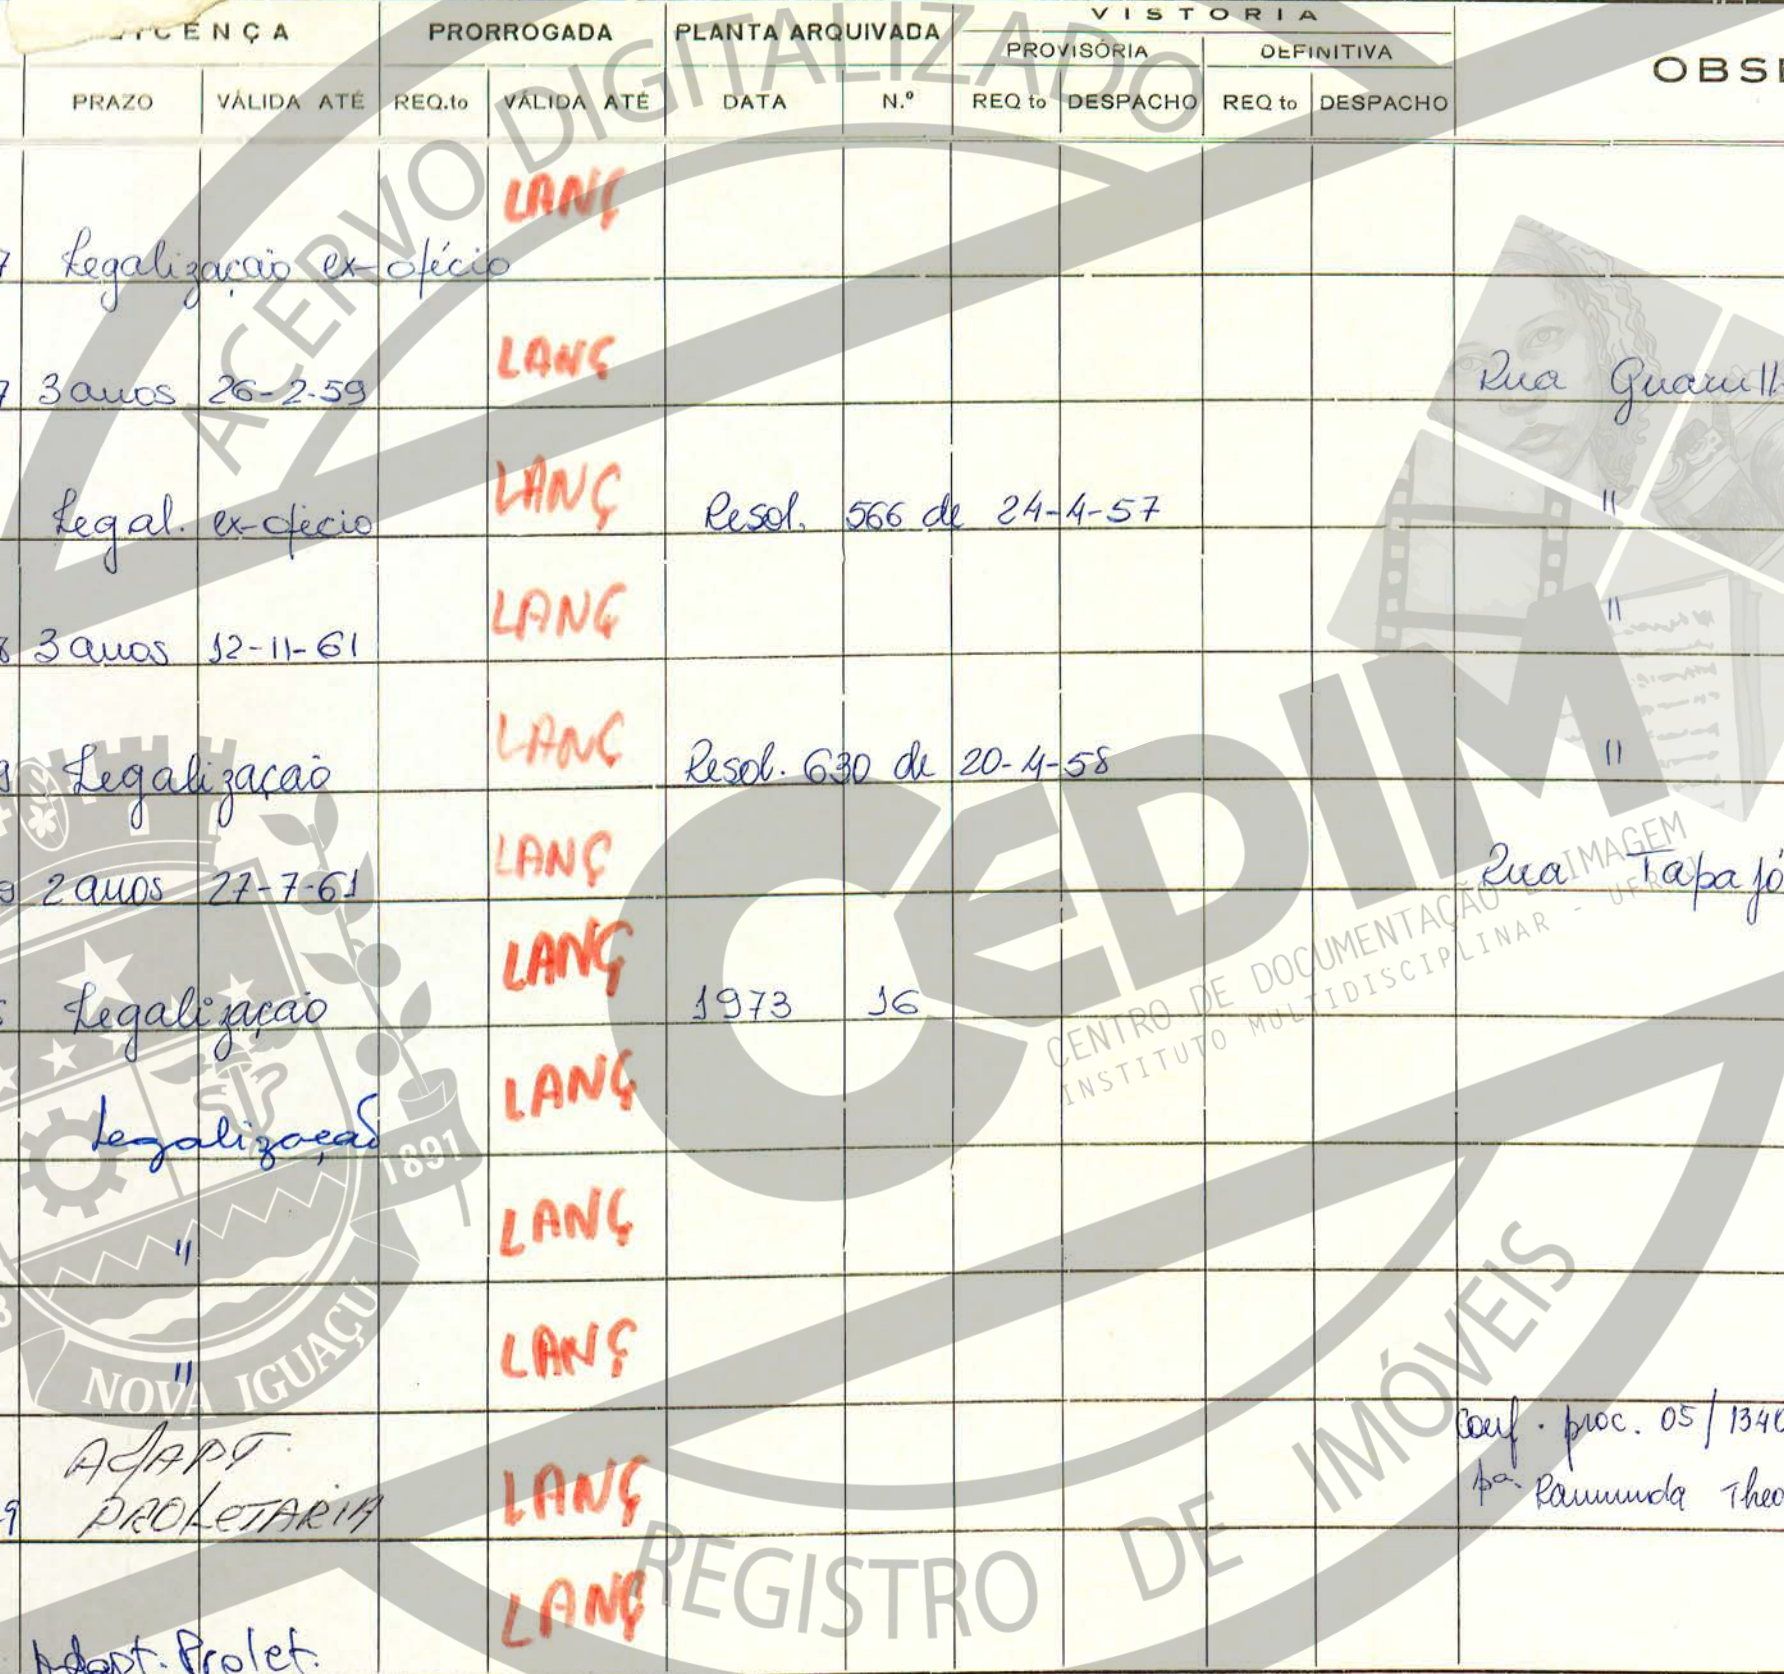 LICENÇA PRORROGADA PLANTA ARQUIVADA VISTORIA
PROVISÓRIA DEFINITIVA
OBSE
PRAZO VÁLIDA ATÉ REQ.to VÁLIDA ATÉ DATA N.º REQ to DESPACHO REQ to DESPACHO
LANÇ
7 Legalização ex-ofécio
LANÇ
7 3 anos 26-2-59 Rua Guarulh
LANÇ
Legal. ex-ofécio Resol. 566 de 24-4-57 "
LANÇ
8 3 anos 12-11-61 "
LANÇ
9 Legalização Resol. 630 de 20-4-58 "
LANÇ
9 2 anos 27-7-61 Rua Tapajó
LANÇ
Legalização 1973 16
LANÇ
Legalização
LANÇ
"
LANÇ
"
Conf. proc. 05/1340
ADAPT.
LANÇ
9 PROLETARIA
pa. Raimunda Theo
LANÇ
Adapt. Prolet.
ACERVO DIGITALIZADO
CEDIM
CENTRO DE DOCUMENTAÇÃO E IMAGEM
INSTITUTO MULTIDISCIPLINAR - UFRRJ
1891
NOVA IGUAÇU
REGISTRO DE IMÓVEIS